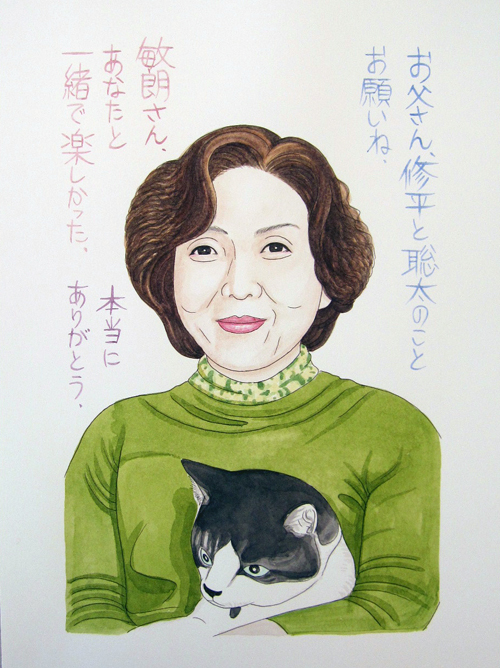 お父さん、修平と聡太のこと
お願いね、
敏朗さん、
あなたと
一緒で楽しかった、
本当に
ありがとう、